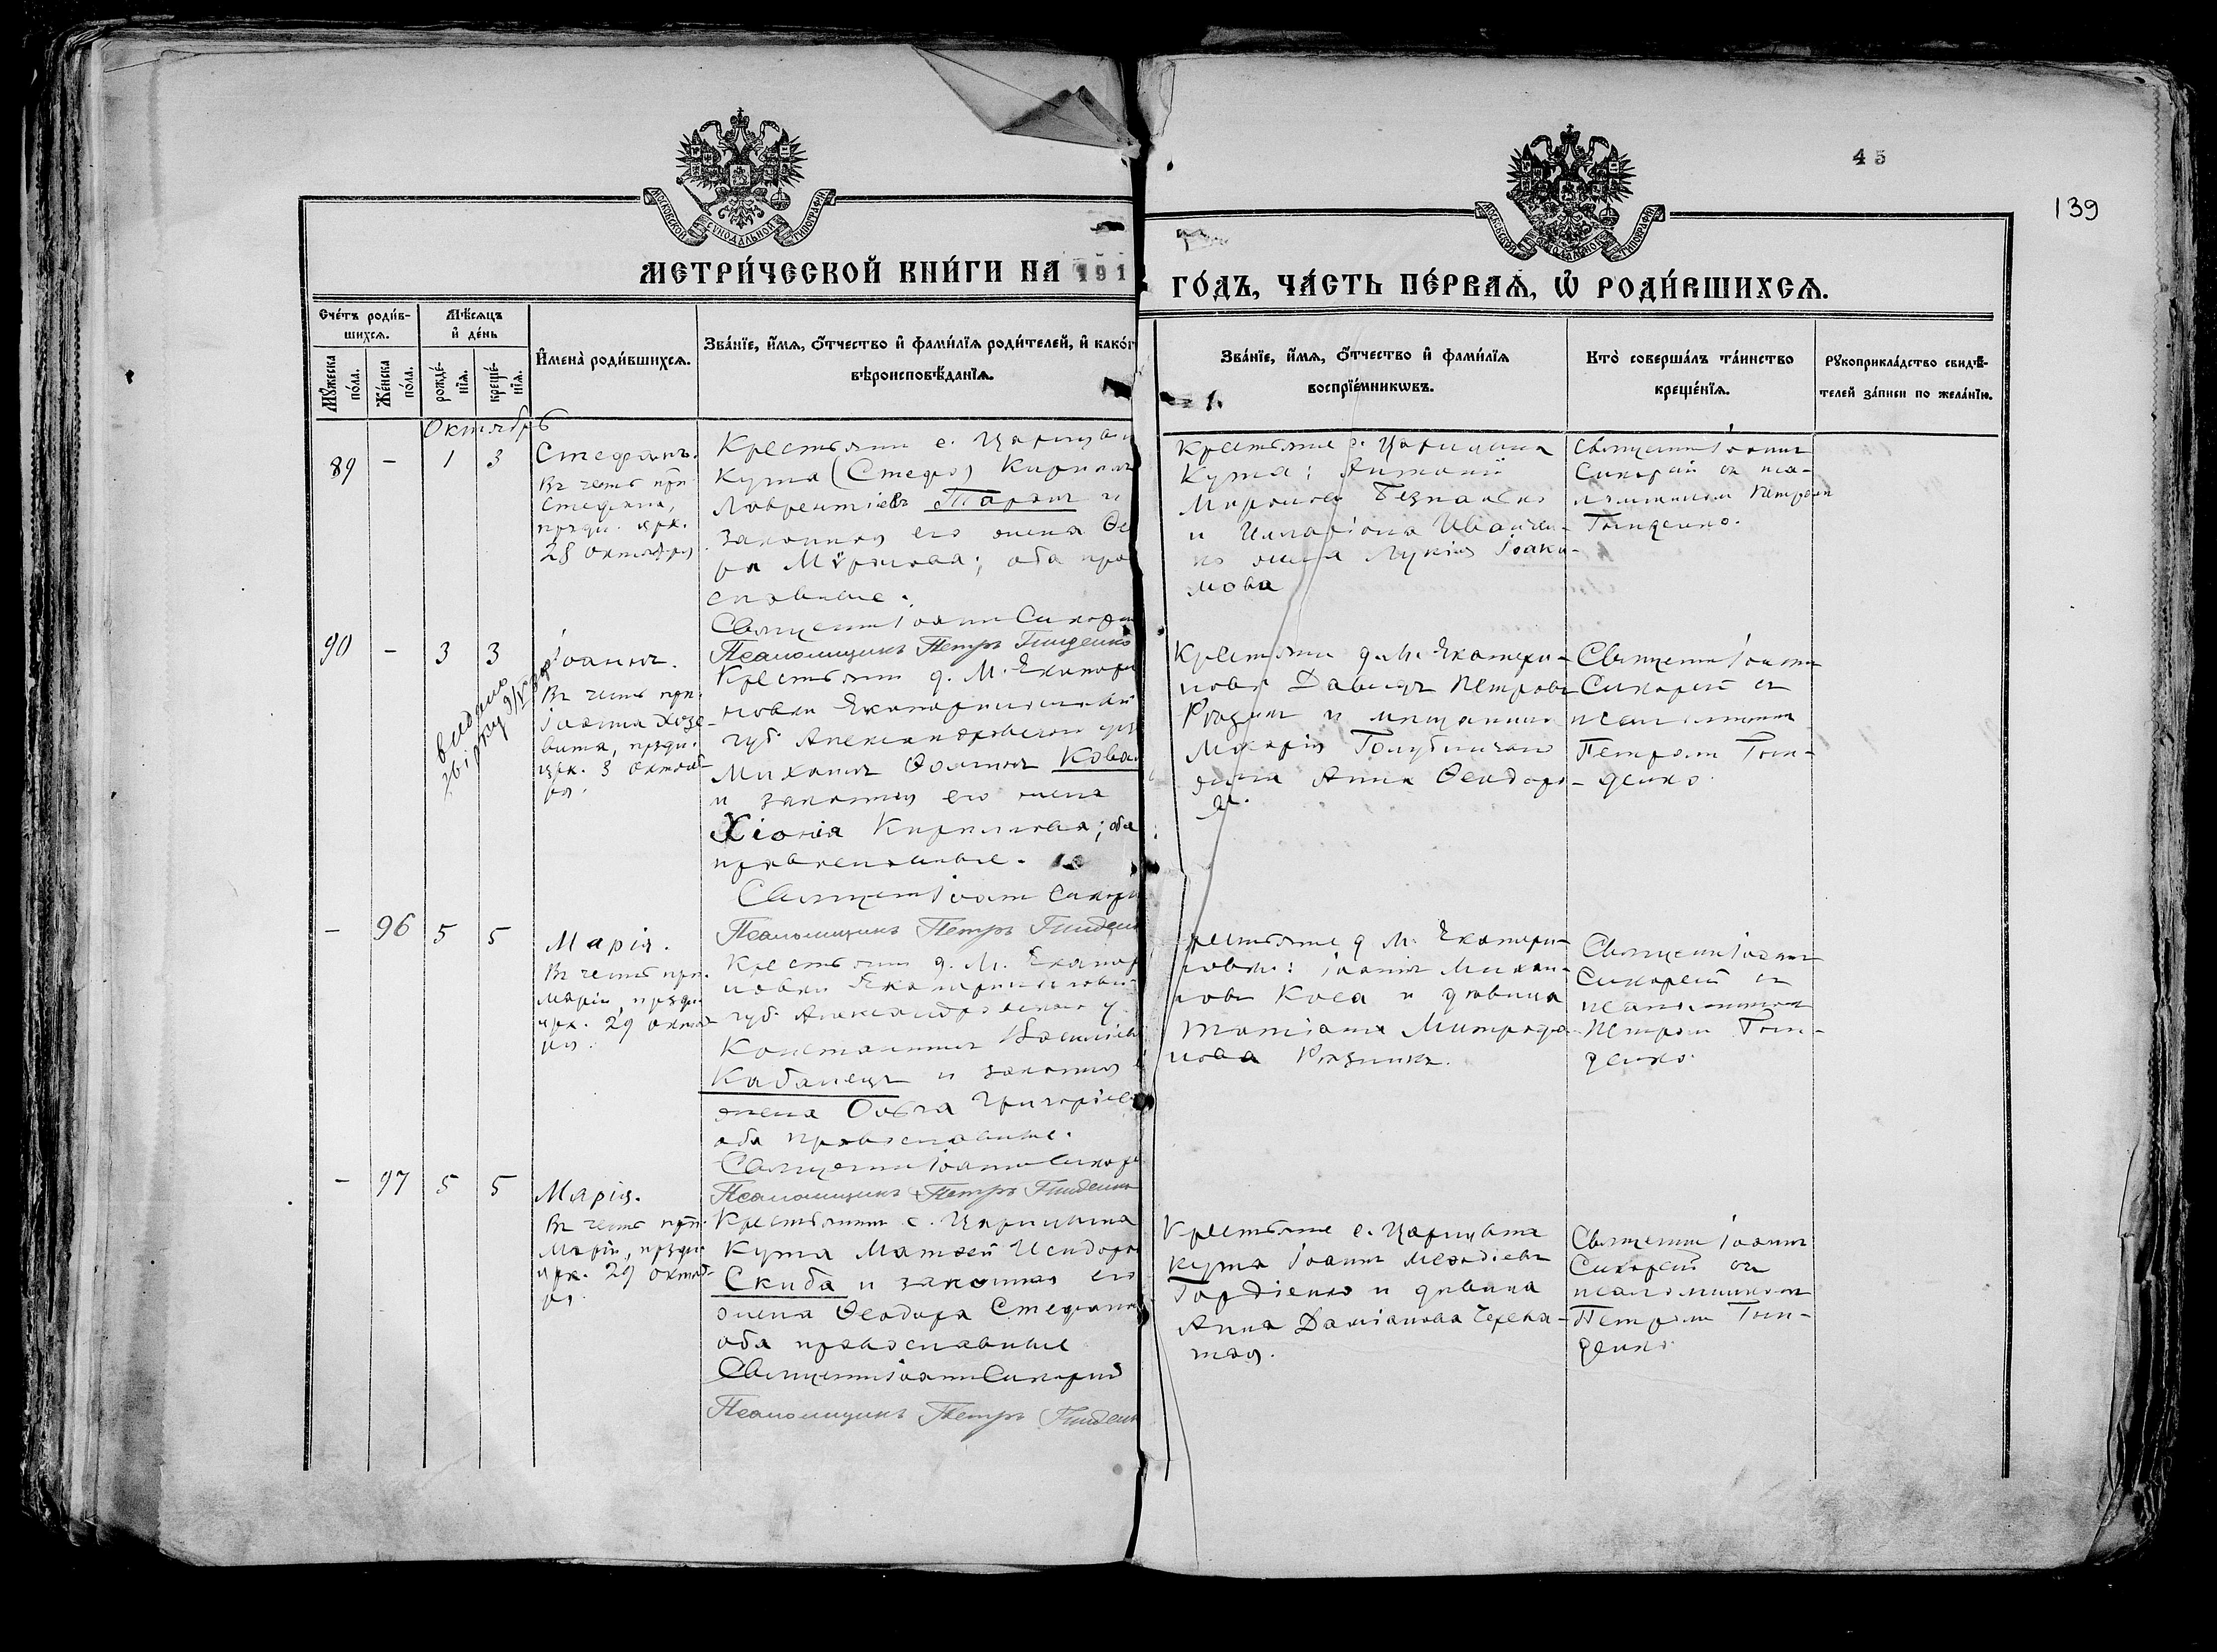 45
139
МОСКОВСКОЙ СѴНОДАЛЬНОЙ ТИПОГРАФІИ
МОСКОВСКОЙ СѴНОДАЛЬНОЙ ТИПОГРАФІИ
МЕТРИ́ЧЕСКОЙ КНИ́ГИ НА 191
ГО́ДЪ, ЧА́СТЬ ПЕ́РВАѦ, Ѡ РОДИ́ВШИХСѦ.
Сче́тъ роди́в-
шихсѧ.
Мꙋ́жеска по́ла.
Же́нска по́ла.
Мѣ́сѧцъ
и де́нь
рожде́-
нїѧ.
креще́-
нїѧ.
Имена̀ роди́вшихсѧ.
Зва́нїе, и́мѧ, ѻ́тчество и фами́лїѧ роди́телей, и како́г
вѣроисповѣ́данїѧ.
Зва́нїе, и́мѧ, ѻ́тчество и фами́лїѧ
воспрїе́мникѡвъ.
Кто̀ соверша́лъ та́инство
креще́нїѧ.
Рꙋкоприкла́дство свидѣ́-
телей за́писи по жела́нїю.
Октябрь
89 - 1 3
Стефанъ.
Въ честь прп.
Стефана,
праздн. црк.
28 октября
Крестьянин с. Царицына
Кута (Стефо) Кирилл
Лаврентіевъ Таран и
законная его жена Ѳе
ра Миронова; оба пра
славные.
Священникъ Іоаннъ Сикор
Псаломщикъ Петръ Гниденко
Крестьяне с. Царицына
Кута: Антоній
Миронов Безпалько
и Илларіона Иванчен-
ко жена Лукія Іоаки-
мова
Священникъ Іоаннъ
Сикорскій съ пса-
ломщиком Петром
Гниденко.
90 - 3 3
Іоаннъ.
Въ честь прп.
Іоанна Хозе-
вита, праздн.
црк. 3 октяб-
ря.
выдано
Крестьянин д. М. Екатери
новки Екатеринославской
губ. Александровскаго уез
Михаилъ Ѳоминъ Кова
и законная его жена
Хіонія Кириллова; оба
православные.
Священникъ Іоаннъ Сикор
Псаломщикъ Петръ Гниденк
Крестьянин д. М. Екатери-
новки Давидъ Петровъ
Рѣзник и мещанина
Макарія Голубницкаго
жена Анна Ѳеодоро-
а.
Священникъ Іоаннъ
Сикорскій съ
псаломщиком
Петромъ Гни-
денко.
- 96 5 5
Марія.
Въ честь прп.
Маріи, праздн.
црк. 29 октяб-
ря.
Крестьянин д. М. Екатер
новки Екатеринославск
губ. Александровскаго у.
Константинъ Васильев
Кабанецъ и законная
жена Ольга Григорьев
оба православные.
Священникъ Іоаннъ Сикор
Псаломщикъ Петръ Гниденко
рестьяне д. М. Екатери-
новки: Іоаннъ Михаи-
ловъ Коса и дѣвица
Татіана Митрофа-
нова Рѣзникъ.
Священникъ Іоаннъ
Сикорскій съ
псаломщиком
Петром Гни-
денко.
- 97 5 5
Марія.
Въ честь прп.
Маріи, праздн.
црк. 29 октяб-
ря.
Крестьянин с. Царицына
Кута Матѳей Исидоро
Скиба и законная его
жена Ѳеодора Стефано
оба православные
Священникъ Іоаннъ Сикорскій
Псаломщикъ Петръ Гниденк
Крестьяне с. Царицына
Кута Іоаннъ Меѳодіевъ
Гордіенко и дѣвица
Анна Даміанова Черева-
тая.
Священникъ Іоаннъ
Сикорскій съ
псаломщиком
Петром Гни-
денко.